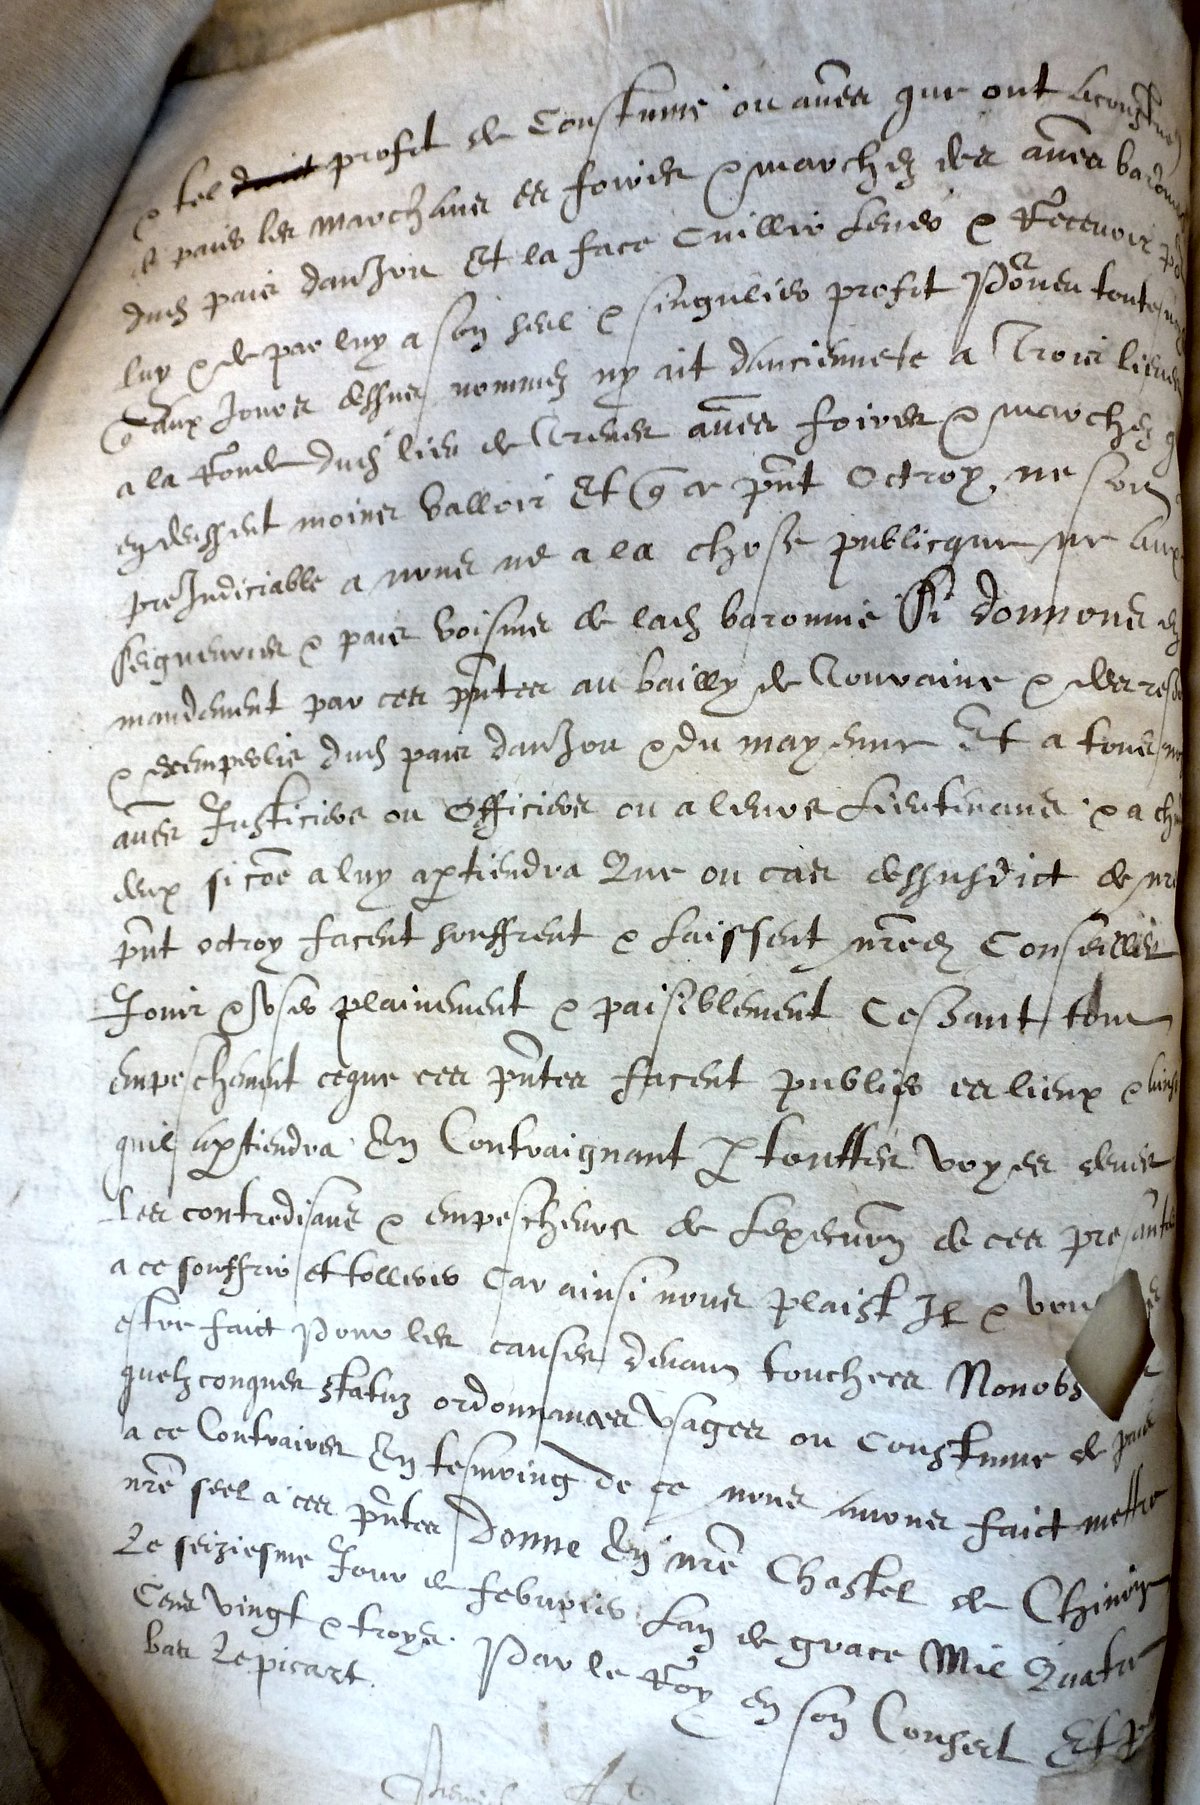 & tel droict profit de Coustume ou aūes que ont acoustume
de pais les marchans es foires & marchez des aūes baronnies
dudz pais danjou Et la face cuillir Lever & Recevoir po
luy & de par luy a son seul & singulier profit Pōven toutes
q̄ aux Jours dessus nommez ny ait dancienneté a Trois lieues
a la Ronde dudz lieu de Treves aūes foires & marchez q
en deussent moins valloir Et q̄ ce pn̄t Octroy ne soit
preJudiciable a nous ne a la chose publicque ne aux
seigneuries & pais voisins de ladz baronnie Si donnons en
mandement par ces pn̄tes au bailly de Touraine & des ress
& exempcōs dudz pais danJou & du mayenne Et a tous
aūes Justiciers ou Officiers ou a leurs Lieutenans & a ch
deux si cōe a luy ap̄tiendra Que ou cas dessusdict de nr̄e
pn̄t octroy facent souffrent & Laissent nr̄edz Conseiller
Jouir & Vser plainement & paisiblement Cessant tout
empeschement ceque ces pn̄tes facent publier es lieux &
quil ap̄tiendra En Contraignant p̄ touttes voyes deues
Les contredisans & empescheurs de Lexecuōn de ces presāntes
a ce souffrir et tollerer Car ainsi nous plaist Il &
estre faict Pour les causes devant touchees Nonobs
quelzconques statuz ordonnances Vsages ou Coustume de pais
a ce Contraires En tesmoing de ce nous avons faict mettre
nr̄e seel a ces pn̄tes Donne En nr̄e Chastel de Chinon
Le seiziesme Jour de febvrier Lan de grace Mil Quatre
Cens Vingt & troys. Par le Roy en son Conseil Et p
bas Lepicart.